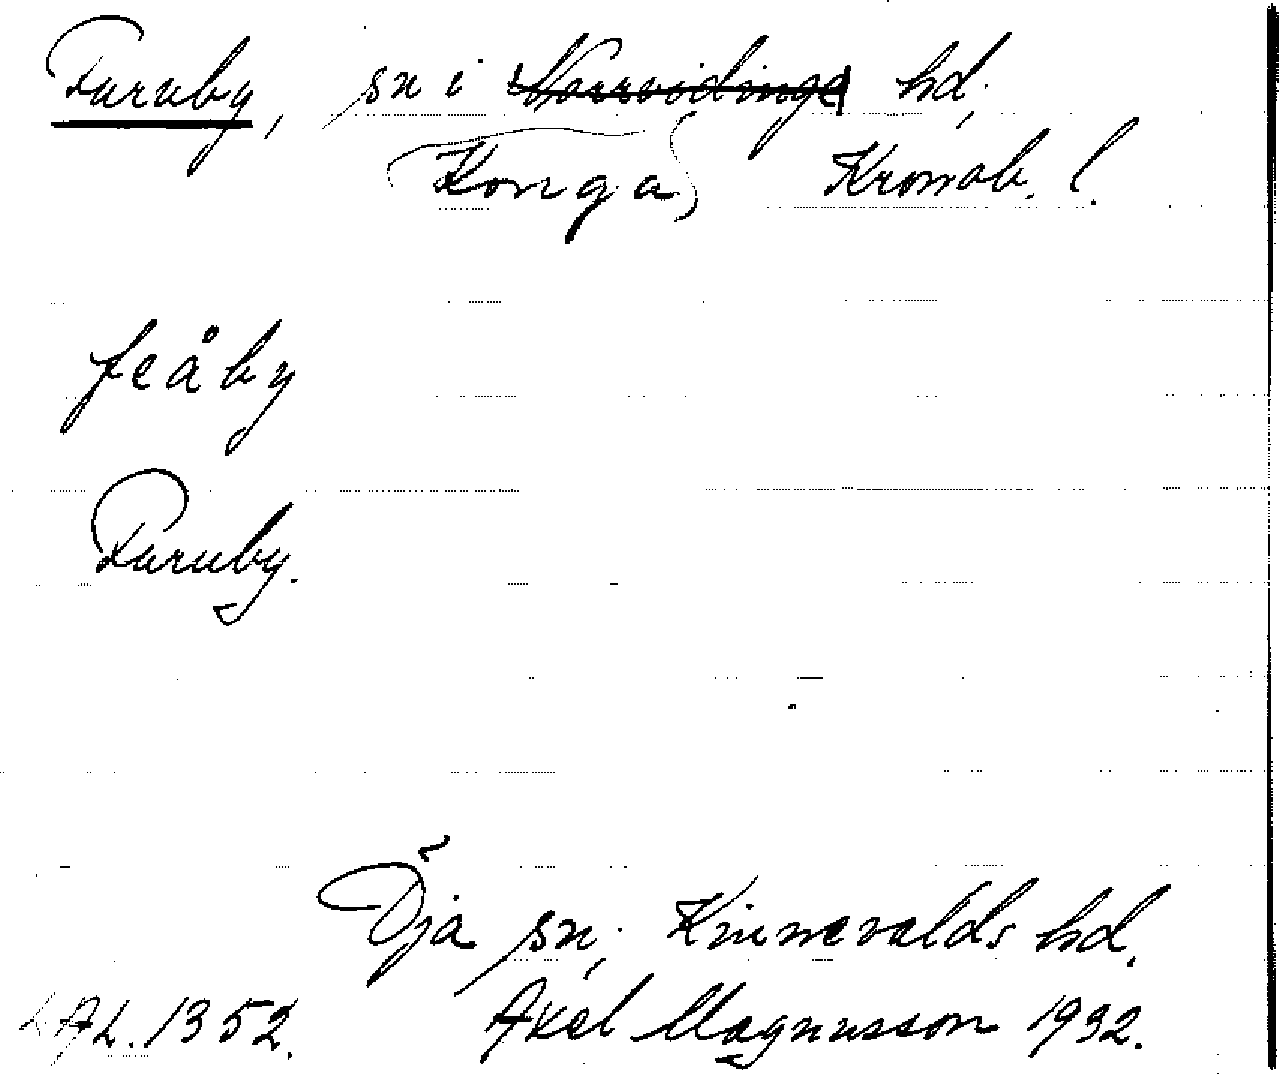 Furuby, sn i Norrvidinge hd,
Konga Kronob. l.
feåby
Furuby.
Öja sn, Kinnevalds hd.
LAL. 1352. Axel Magnusson 1932.